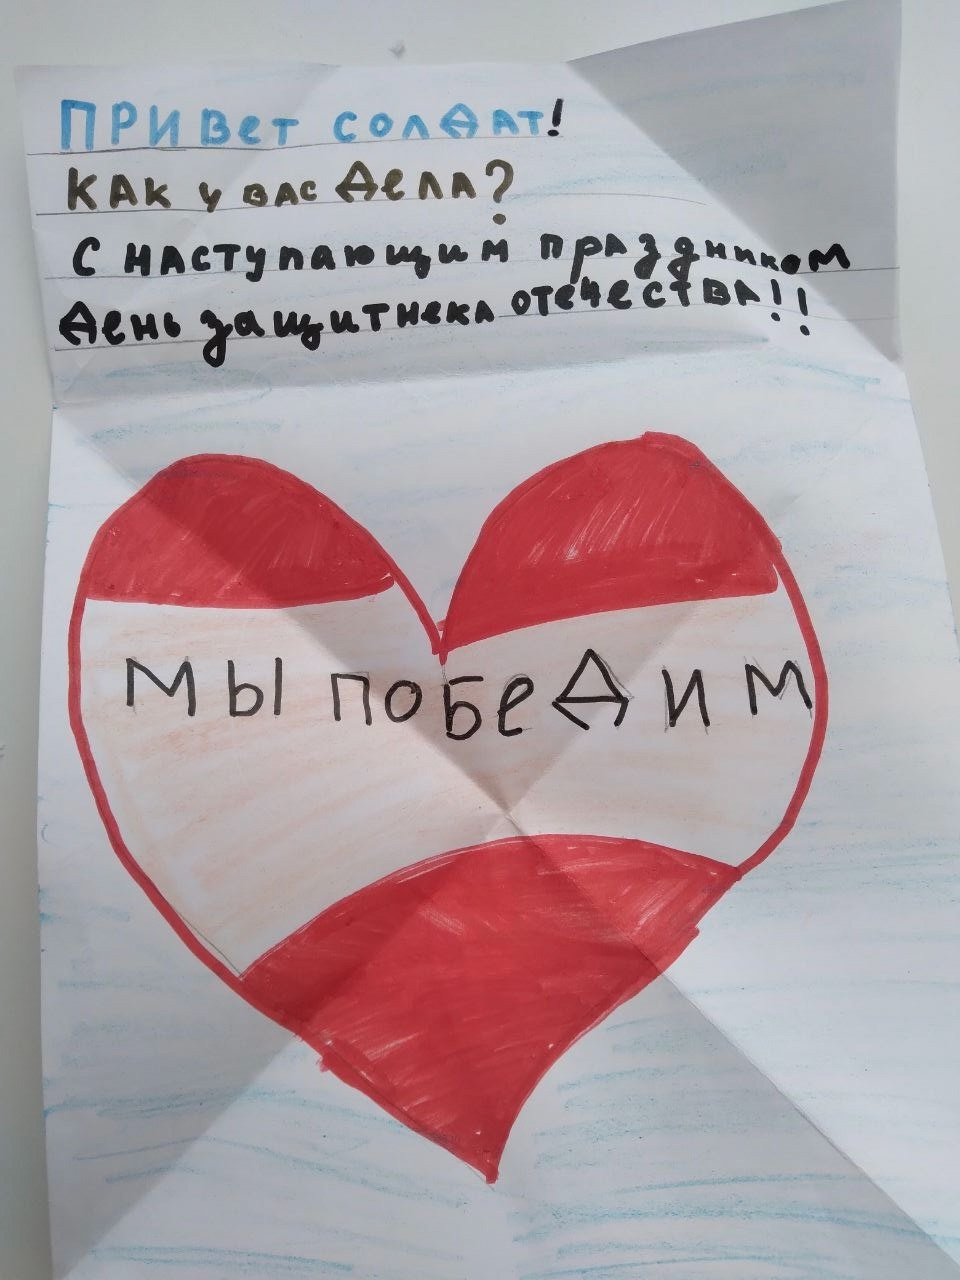 ПРИВЕТ СОЛДАТ!
КАК У ВАС ДЕЛА?
С НАСТУПАЮЩИМ ПРАЗДНИКОМ
ДЕНЬ ЗАЩИТНЕКА ОТЕЧЕСТВА!!
МЫ ПОБЕДИМ